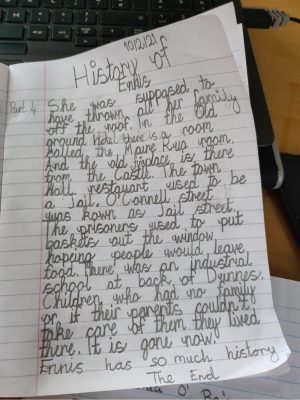 10/2/21
History of
Ennis
Part 4
She was supposed to
have thrown all her family
off the roof. In the Old
ground Hotel there is a room
called the Maire Rua room.
And the old fireplace is there
from the Castle. The town
Hall restaurant used to be
a Jail. O'Connell street
was known as Jail street.
The prisoners used to put
baskets out the window
hoping people would leave
food. There was an industrial
school at back of Dunnes.
Children who had no family
or if their parents couldn't
take care of them they lived
there. It is gone now.
Ennis has so much history
The End